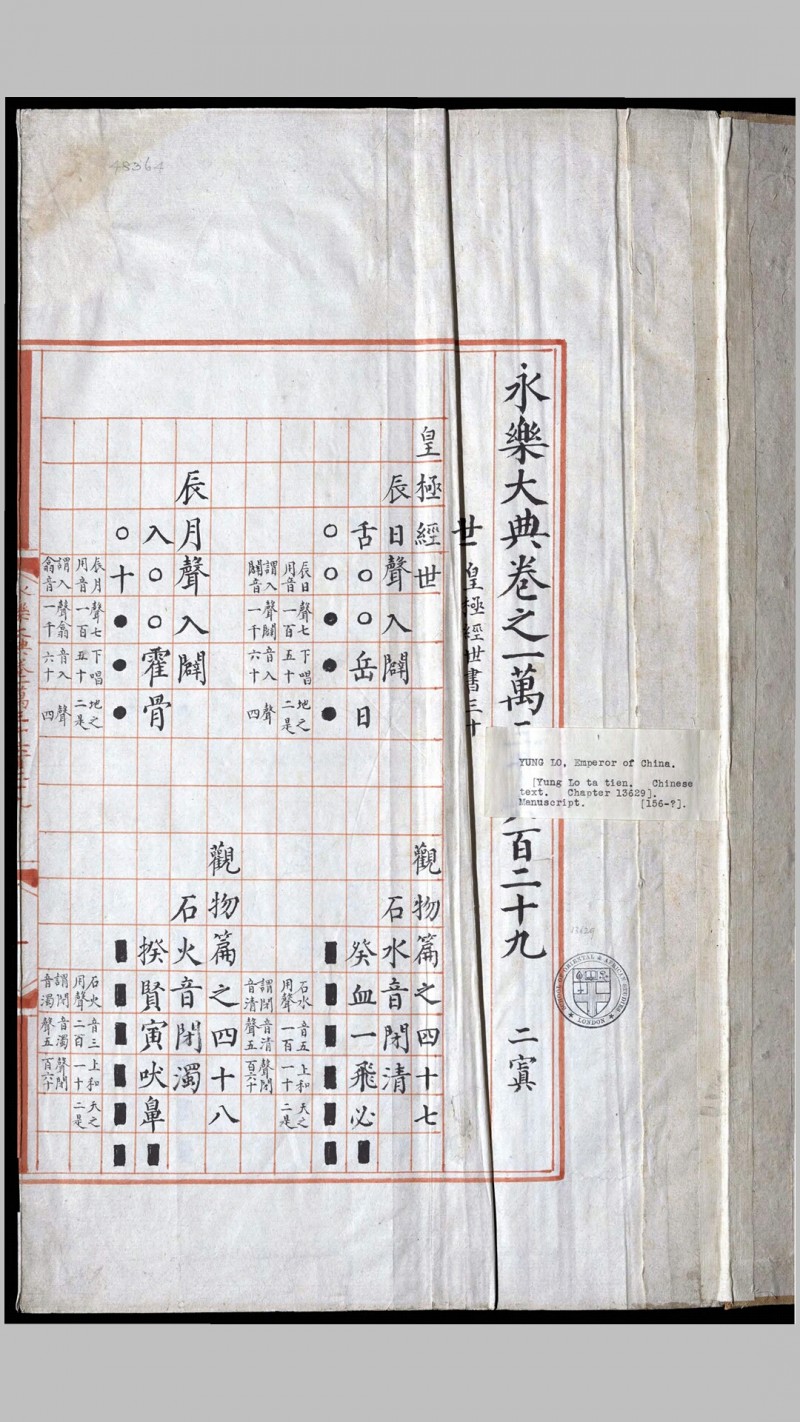 48364
永樂大典卷之一萬
百二十九 二寘
YUNG LO, Emperor of China.
[Yung Lo ta tien. Chinese
text. Chapter 13629].
Manuscript. [156-?].
13629
SCHOOL OF ORIENTAL & AFRICAN STUDIES
LONDON
世 皇極經世書三十
皇極經世 觀物篇之四十七
辰日聲入闢 石水音閉清
舌○○岳日 癸血一飛必■
○○●●● ■■■■■■
辰日聲七下唱地之
用音一百五十二是
謂入聲闢音入聲
闢音一千六十四
石水音五上和天之
用聲一百一十二是
謂閉音清聲閉
音清聲五百六十
觀物篇之四十八
辰月聲入闢 石火音閉濁
入○○霍骨 揆賢寅吠鼻■
○十●●● ■■■■■■
辰月聲七下唱地之
用音一百五十二是
謂入聲翕音入聲
翕音一千六十四
石火音三上和天之
用聲二百一十二是
謂閉音濁聲閉
音濁聲五百六十